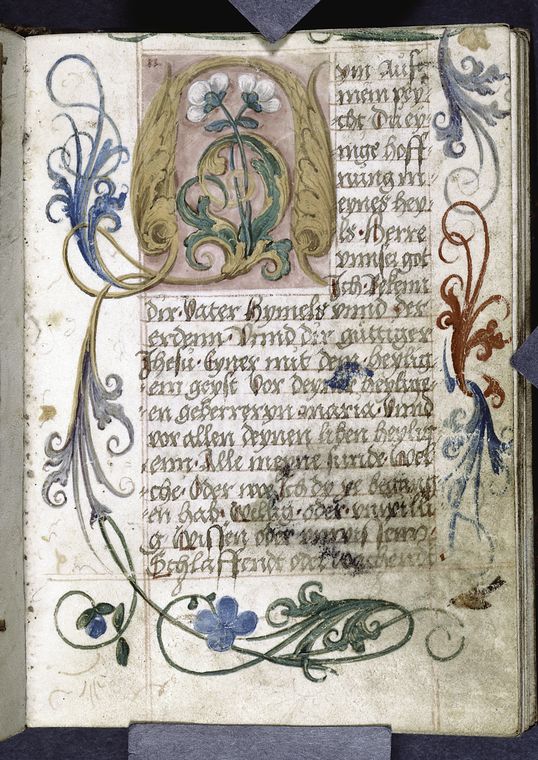 33
Nym Auff
mein pey
cht Du ey
nige hoff
nung m
eynes hey
ls · Herre
vnnser got
Ich Bekenn
dir · Vater Hymels vnnd · der
erdenn · Vnnd dir güttiger
Jhesu · Eyner mit dem · heylig
em geyst Vor deyner heylige
en geberreryn maria · Vnnd
vor allen deynen liben heylig
enn · Alle meyne sunde Wel
che · Oder wor Ich dy ye begang
en hab · Willig · oder vnwilli
g Wissen oder vnwissenn ·
Schlaffendt oder wachendt